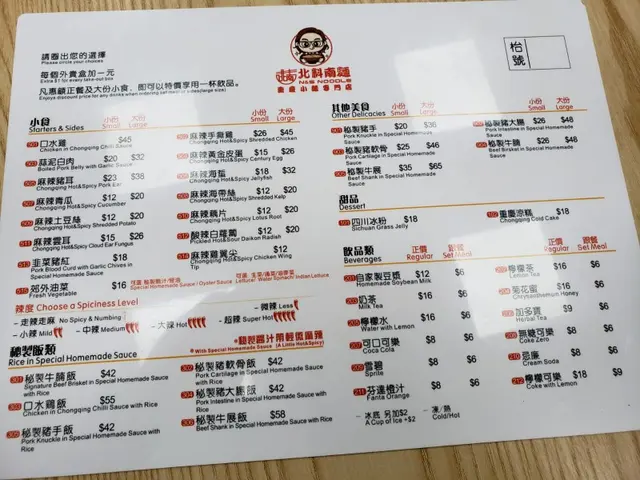 請圈出您的選擇
Please circle your choices
每個外賣盒加一元
Extra $1 for every take-out box
凡惠顧正餐及大份小食，即可以特價享用一杯飲品。
Enjoy discount price for any drinks when ordering set meal or sides(large size)
北科南麵
N&S NOODLE
重慶小麵專門店
枱號
小食 小份 大份
Starters & Sides Small Large
501 口水雞 $45
Chongqing Hot&Spicy Chicken
蒜泥白肉 $20 $32
Boiled Pork Belly with Garlic Sauce
麻辣豬耳 $23 $38
Chongqing Hot&Spicy Pork Ear
麻辣青瓜 $12 $20
Chongqing Hot&Spicy Cucumber
麻辣土豆絲 $12 $20
Chongqing Hot&Spicy Shredded Potato
511 麻辣雲耳 $15 $26
Chongqing Hot&Spicy Cloud Ear Fungus
513 韭菜豬紅 $18
Pork Blood Curd with Garlic Chives in Special Homemade Sauce
515 郊外油菜 $16
Fresh Vegetable
小份 大份
Small Large
麻辣手撕雞 $26 $45
Chongqing Hot&Spicy Shredded Chicken
麻辣黃金皮蛋 $15 $26
Chongqing Hot&Spicy Century Egg
麻辣海蜇 $18 $32
Chongqing Hot&Spicy Jellyfish
麻辣海帶絲 $12 $20
Chongqing Hot&Spicy Shredded Kelp
麻辣藕片 $12 $20
Chongqing Hot&Spicy Lotus Root
512 酸辣白蘿蔔 $12 $20
Pickled Hot&Sour Daikon Radish
514 麻辣雞翼尖 $12 $20
Chongqing Hot&Spicy Chicken Wing Tip
辣度 Choose a Spiciness Level
走辣走麻 No Spicy & Numbing
微辣 Less
小辣 Mild
中辣 Medium
大辣 Hot
超辣 Super Hot
*秘製醬汁帶輕微麻辣
*With Special Homemade Sauce (A Little Hot&Spicy)
秘製飯類
Rice in Special Homemade Sauce
301 秘製牛腩飯 $42
Signature Beef Brisket in Special Homemade Sauce with Rice
303 口水雞飯 $55
Chicken in Chongqing Chilli Sauce with Rice
305 秘製豬手飯 $42
Pork Knuckle in Special Homemade Sauce with Rice
302 秘製豬軟骨飯 $42
Pork Cartilage in Special Homemade Sauce with Rice
304 秘製豬大腸飯 $42
Pork Intestine in Special Homemade Sauce with Rice
306 秘製牛展飯 $58
Beef Shank in Special Homemade Sauce with Rice
其他美食 小份 大份
Other Delicacies Small Large
秘製豬手 $20 $36
Pork Knuckle in Special Homemade Sauce
秘製豬軟骨 $25 $46
Pork Cartilage in Special Homemade Sauce
秘製牛展 $35 $65
Beef Shank in Special Homemade Sauce
小份 大份
Small Large
秘製豬大腸 $26 $48
Pork Intestine in Special Homemade Sauce
秘製牛腩 $26 $48
Beef Brisket in Special Homemade Sauce
甜品
Dessert
101 四川冰粉 $18
Sichuan Grass Jelly
102 重慶涼糕 $18
Chongqing Cold Cake
飲品類 正價 跟餐
Beverages Regular Set Meal
自家製豆漿 $12 $6
Homemade Soybean Milk
奶茶 $16 $6
Milk Tea
檸檬水 $16 $6
Water with Lemon
可口可樂 $8 $6
Coca Cola
雪碧 $8 $6
Sprite
211 芬達橙汁 $8 $6
Fanta Orange
冰底 另加$2
A Cup of Ice +$2
凍/熱
Cold/Hot
正價 跟餐
Regular Set Meal
檸檬茶 $16 $6
Lemon Tea
菊花蜜 $16 $6
Chrysanthemum Honey
加多寶 $16 $6
Herbal Tea
無糖可樂 $8 $6
Coke Zero
210 忌廉 $8 $6
Cream Soda
212 檸檬可樂 $18 $9
Coke with Lemon